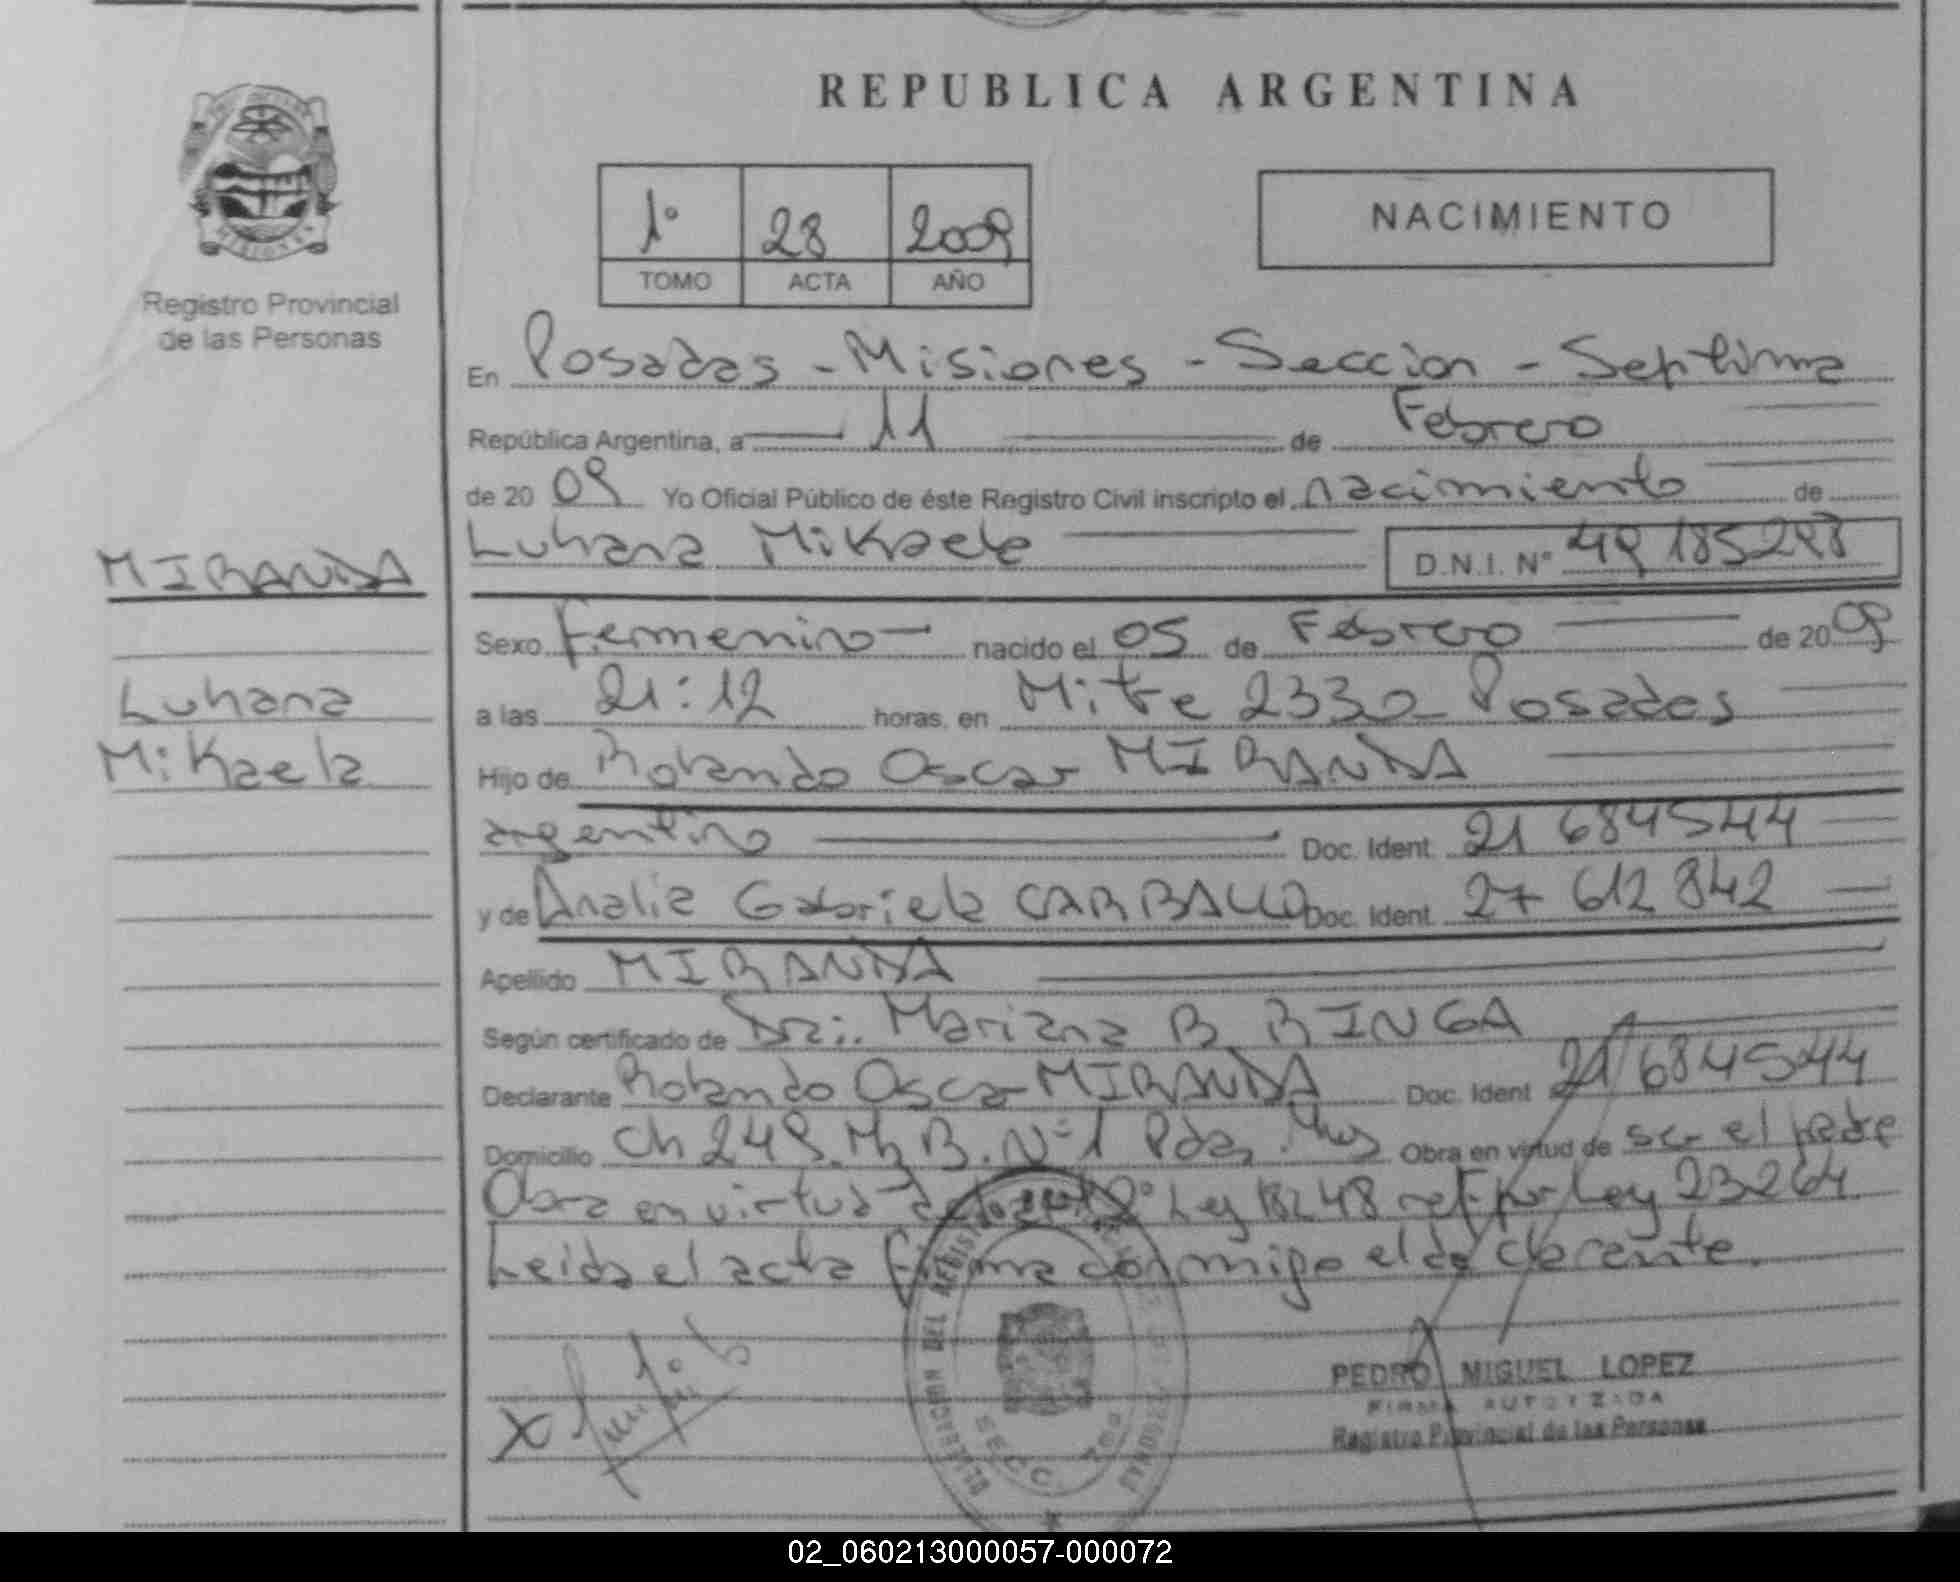 REPUBLICA ARGENTINA
1° 28 2009
TOMO ACTA AÑO
NACIMIENTO
Registro Provincial
de las Personas
En Posadas - Misiones - Seccion - Septima
República Argentina, a 11 de Febrero
de 20 09 Yo Oficial Público de éste Registro Civil inscripto el nacimiento de
Luhana Mikaela D.N.I. N° 49 185298
MIRANDA
Luhana
Mikaela
Sexo Femenino nacido el 05 de Febrero de 20 09
a las 21:12 horas, en Mitre 2330 Posadas
Hijo de Rolando Oscar MIRANDA
argentino Doc. Ident. 21 684544
y de Analia Gabriela CARBALLO Doc. Ident. 27 612 842
Apellido MIRANDA
Según certificado de Dra: Mariana B. BINGA
Declarante Rolando Oscar MIRANDA Doc. Ident 21 684544
Domicilio Ch 249 Mz B. N° 1 Pdas. Mnes Obra en virtud de ser el padre
Obra en virtud Ley 18248 ref. por Ley 23264
Leida el acta firma conmigo el declarante.
PEDRO MIGUEL LOPEZ
FIRMA AUTORIZADA
Registro Provincial de las Personas
DEL
SECC. 7ma
02_060213000057-000072